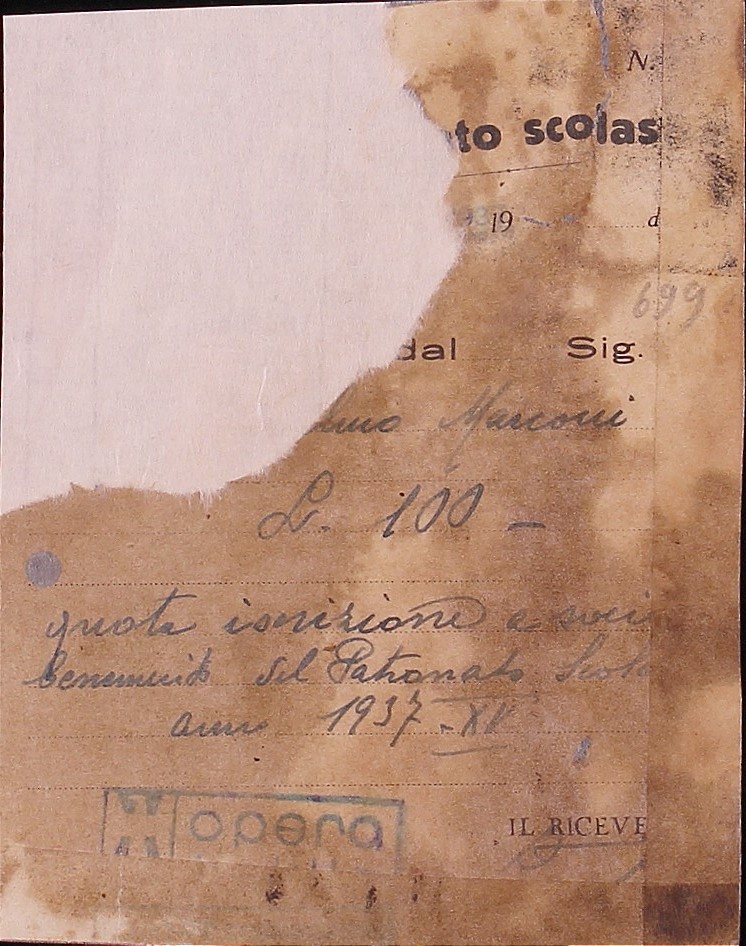 N.
to scolas
19 d
699
dal Sig.
Marconi
L. 100 —
quota iscrizione a soci
benemerito del Patronato Scola
anno 1937-XV
IL RICEVE